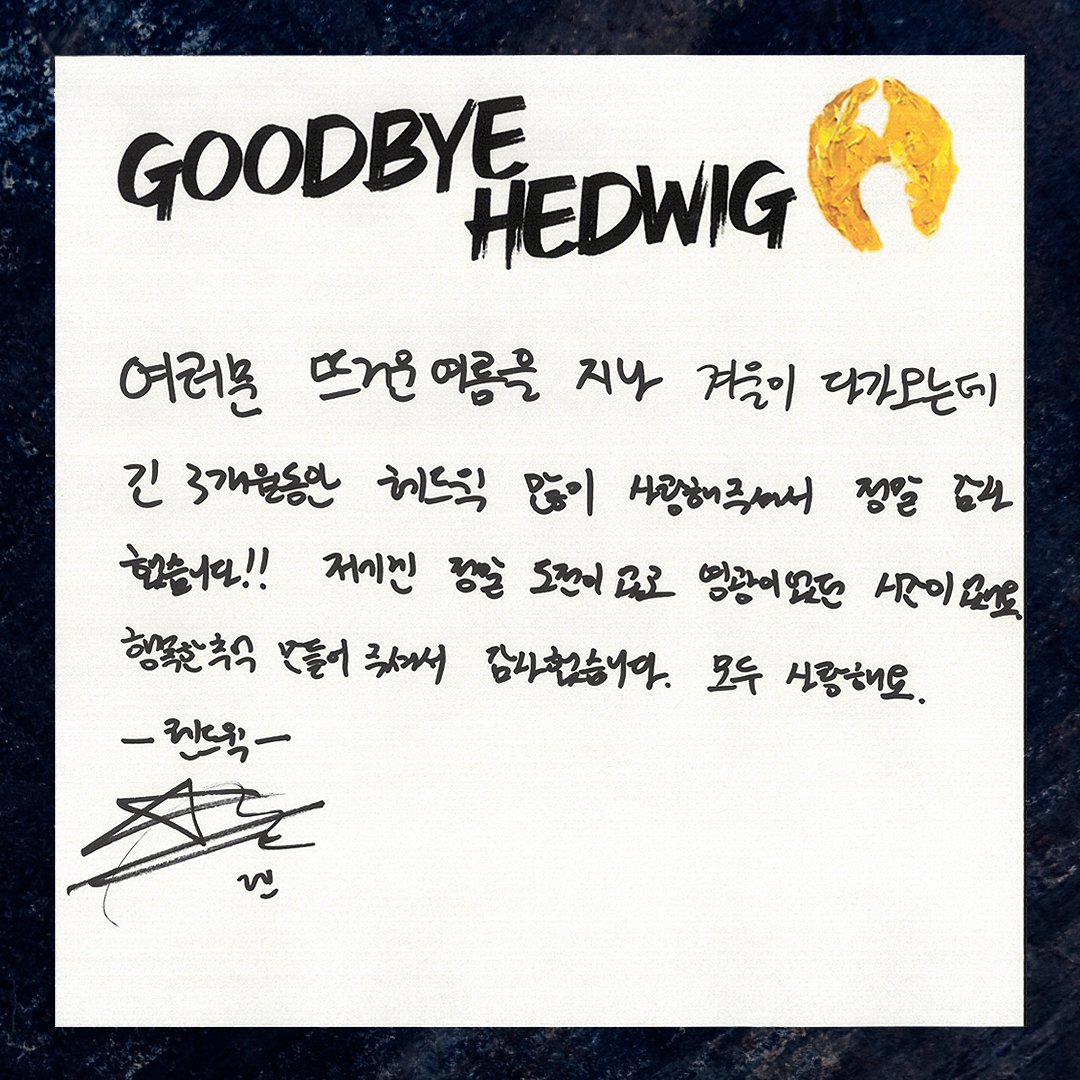 GOODBYE
HEDWIG
여러분 뜨거운 여름을 지나 겨울이 다가오는데
긴 3개월동안 헤드윅 많이 사랑해주셔서 정말 감사
했습니다!! 저에겐 정말 도전이였고 영광이였던 시간이였어요.
행복한 추억 만들어 주셔서 감사했습니다. 모두 사랑해요.
- 렌드윅 -
렌